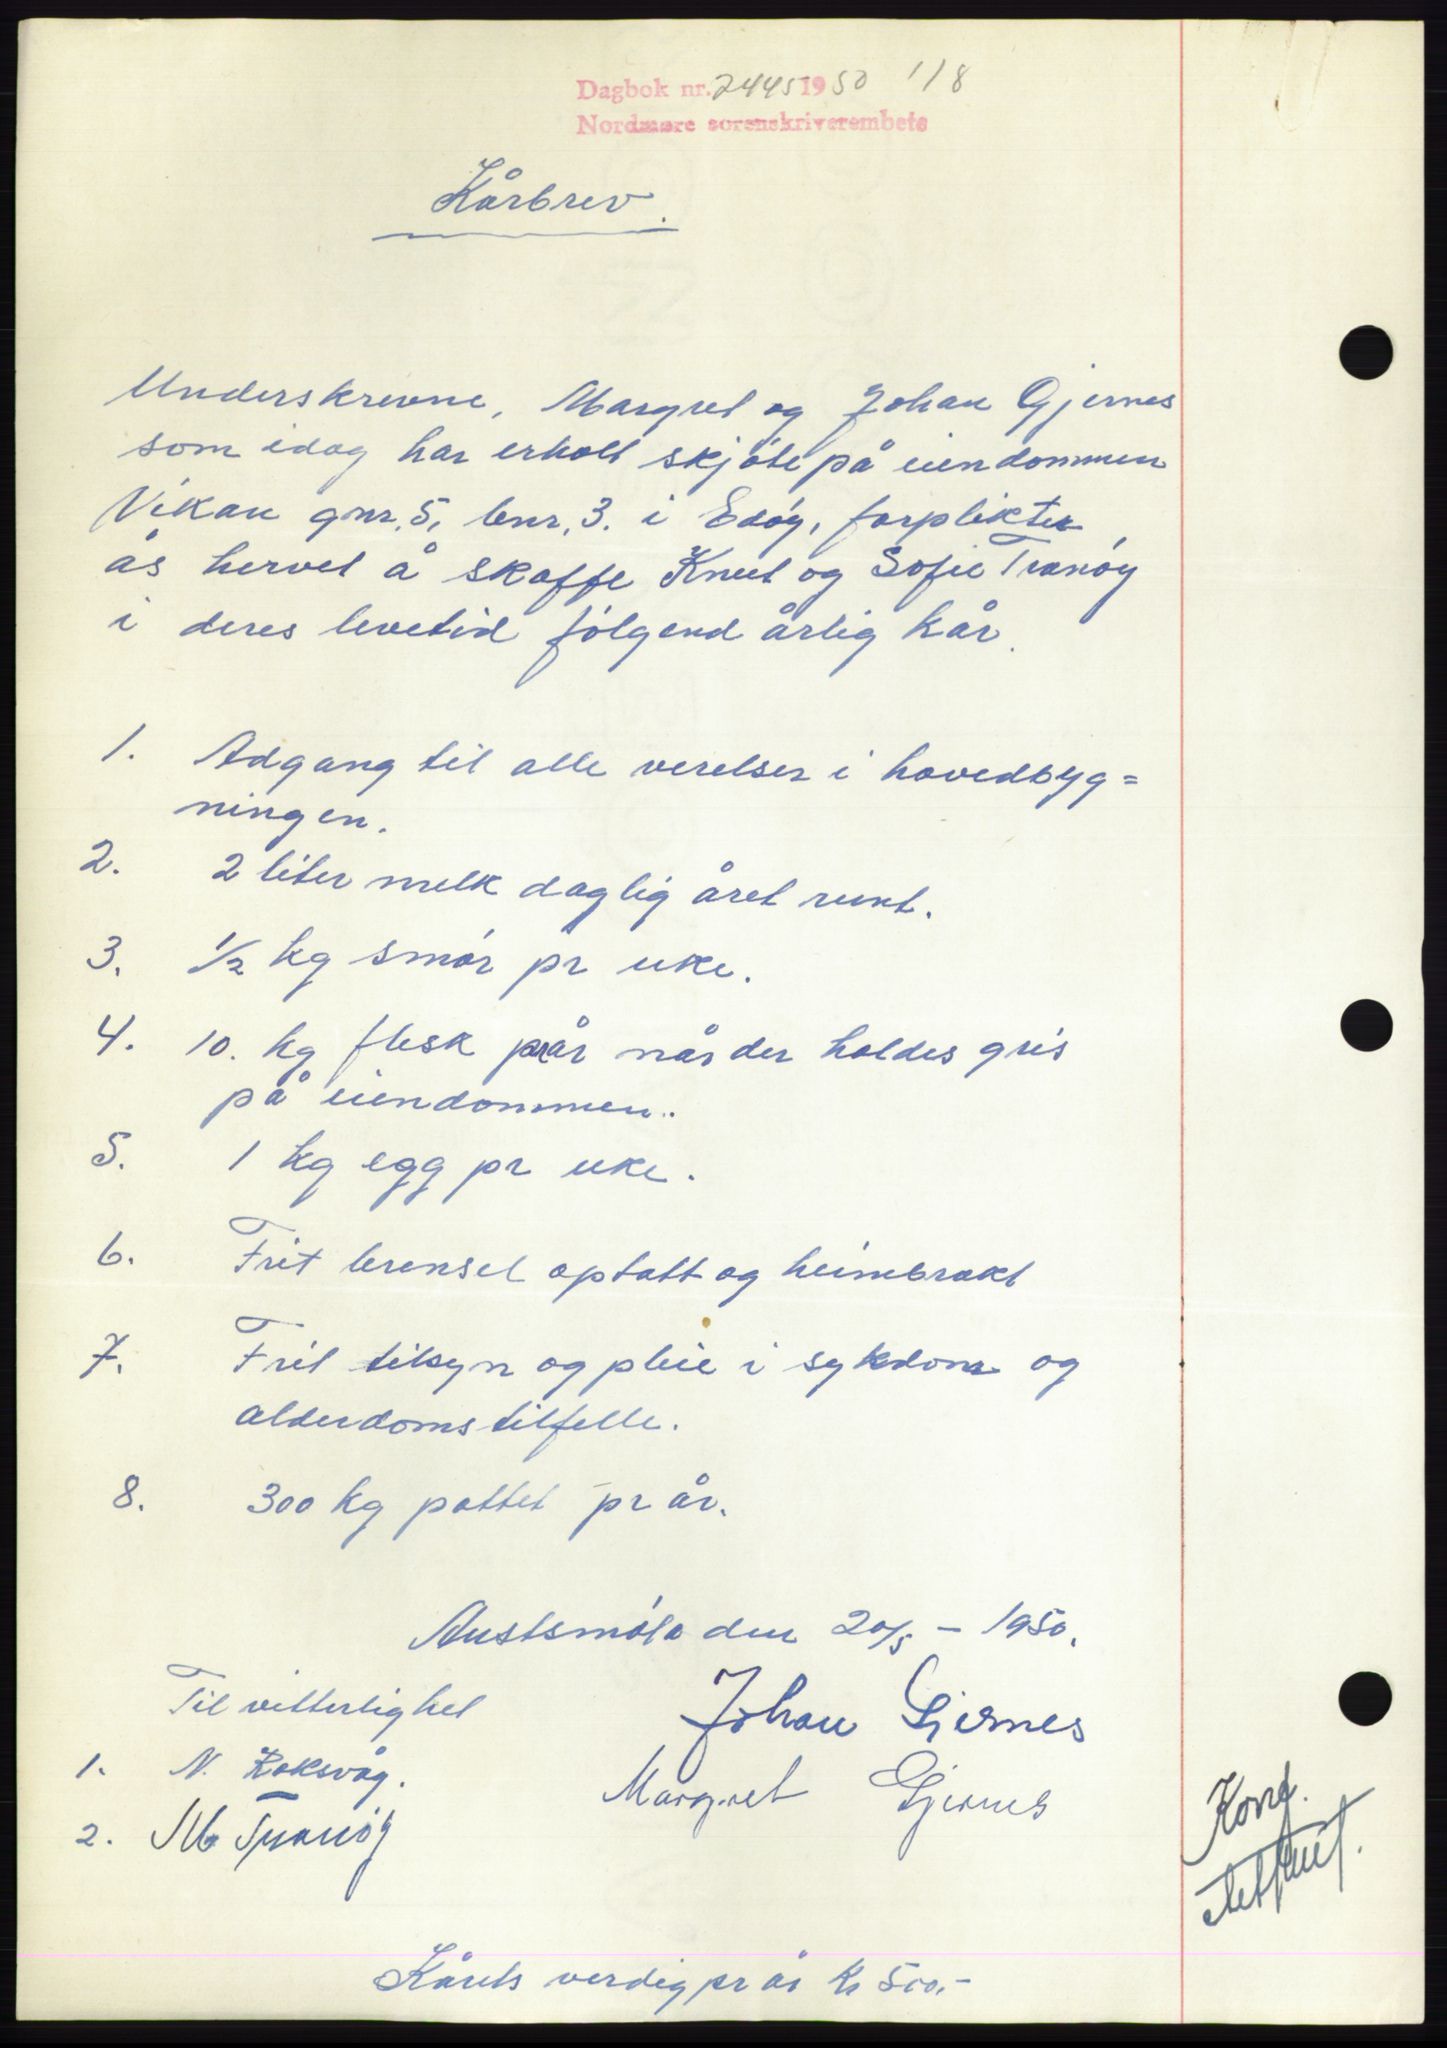 Dagbok nr. 2445 1950 118
Nordmøre sorenskriverembete
Kårbrev.
Underskrevne, Margret og Johan Gjernes
som idag har erholt skjøte på eiendommen
Vikan gnr. 5, bnr. 3. i Edøy, forplikter
ås hervet å skaffe Knut og Sofie Tranøy
i deres levetid følgend årlig kår.
1. Adgang til alle verelser i hovedbyg=
ningen.
2. 2 liter melk daglig året runt.
3. 1/2 kg smør pr uke.
4. 10. kg flesk pr år når der holdes gris
på eiendommen.
5. 1 kg egg pr uke.
6. Frit brensel optatt og heimbrakt
7. Frit tilsyn og pleie i sykdom og
alderdomstilfelle.
8. 300 kg pottet pr år.
Austsmøla den 20/5 - 1950.
Til vitterlighet
Johan Gjernes
1. N. Roksvåg.
Margret Gjernes
2. M Tranøy
Konf.
Kårets verdig pr år kr 500.-